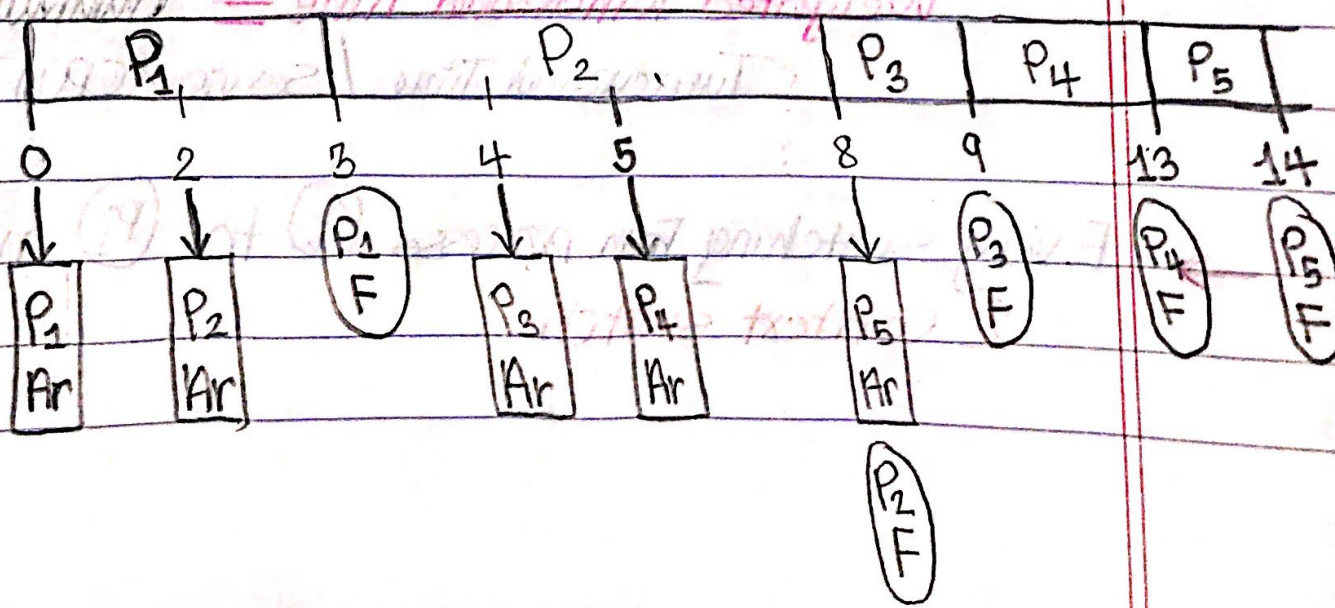 P1 P2 P3 P4 P5
0 2 3 4 5 8 9 13 14
P1 Ar
P2 Ar
P1 F
P3 Ar
P4 Ar
P5 Ar
P3 F
P4 F
P5 F
P2 F